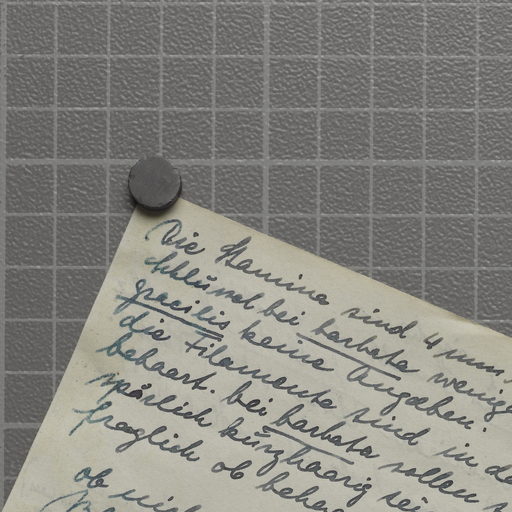 Die Stamina sind 4 mm
bei barbata wenige
gracilis keine Angaben:
die Filamente sind in de
behaart. bei barbata sollen
spärlich kurzhaarig sei
fraglich ob behaa
ob nich